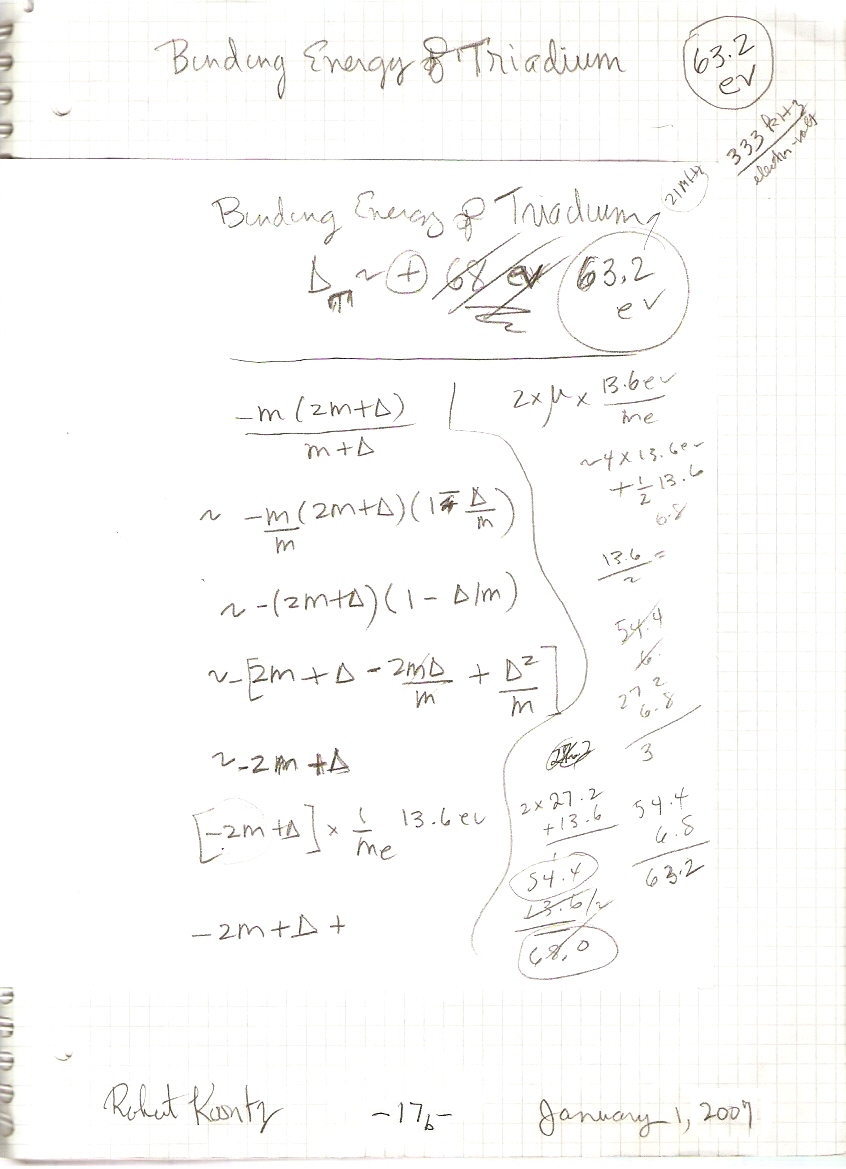 Binding Energy of Triadium
63.2
ev
333 kHz
electron-volt
21 MHz
Binding Energy of Triadium
Δ ~ + 68 ev 63.2
ev
-m (2m+Δ)
m+Δ
~ -m (2m+Δ)(1 - Δ/m)
m
~ -(2m+Δ)(1 - Δ/m)
~ -[2m + Δ - 2mΔ/m + Δ²/m]
~ -2m + Δ
[-2m + Δ] × 1/me 13.6 ev
-2m + Δ +
2 × μ × 13.6 ev
me
~4 × 13.6 ev
+ 1/2 13.6
6.8
13.6 =
2
54.4
6.
27.2
6.8
3
2 × 27.2
+13.6
54.4
13.6/2
68.0
54.4
6.8
63.2
Robert Koontz -17b- January 1, 2007